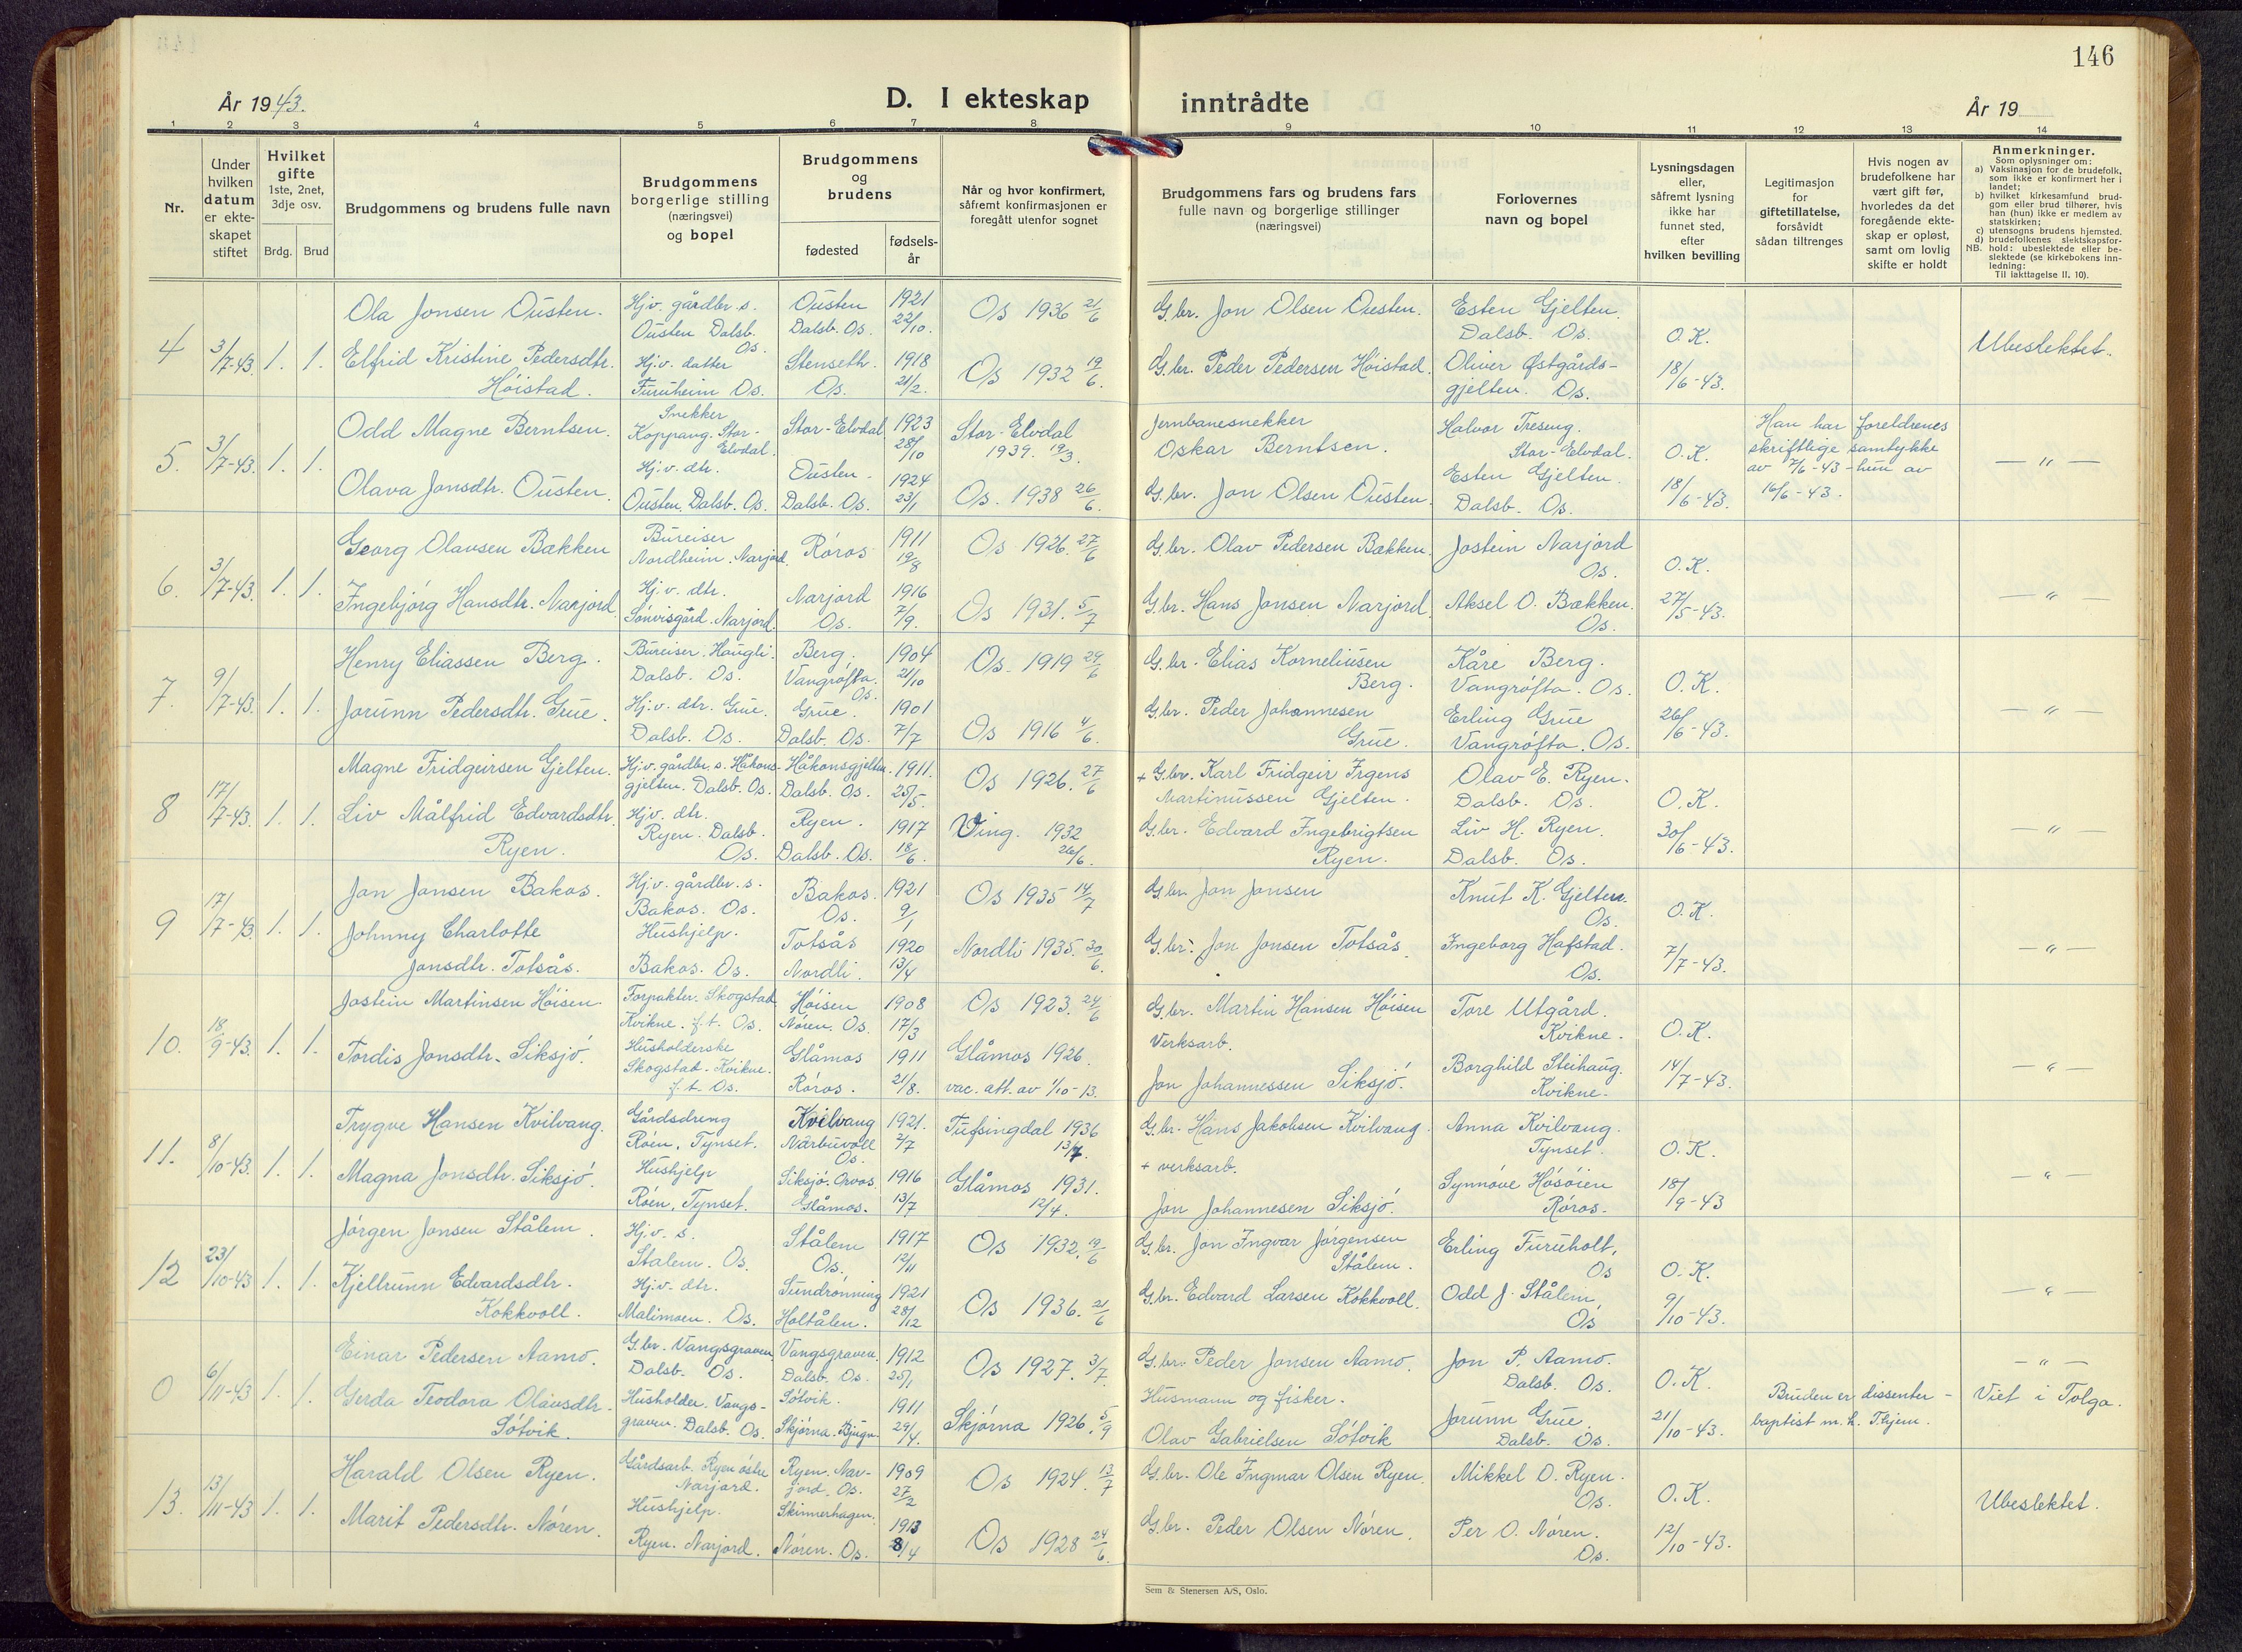 146
År 1943.
D. I ekteskap inntrådte
År 19
1 2 3 4 5 6 7 8 9 10 11 12 13 14
Nr.
Under hvilken datum er ekte-skapet stiftet
Hvilket gifte 1ste, 2net, 3dje osv.
Brdg. Brud
Brudgommens og brudens fulle navn
Brudgommens borgerlige stilling (næringsvei) og bopel
Brudgommens og brudens
fødested
fødsels-år
Når og hvor konfirmert, såfremt konfirmasjonen er foregått utenfor sognet
Brudgommens fars og brudens fars fulle navn og borgerlige stillinger (næringsvei)
Forlovernes navn og bopel
Lysningsdagen eller, såfremt lysning ikke har funnet sted, efter hvilken bevilling
Legitimasjon for giftetillatelse, forsåvidt sådan tiltrenges
Hvis nogen av brudefolkene har vært gift før, hvorledes da det foregående ekte-skap er opløst, samt om lovlig skifte er holdt
Anmerkninger.
Som oplysninger om:
a) Vaksinasjon for de brudefolk, som ikke er konfirmert her i landet;
b) hvilket kirkesamfund brud-gom eller brud tilhører, hvis han (hun) ikke er medlem av statskirken;
c) utensogns brudens hjemsted.
d) brudefolkenes slektskapsfor-hold: ubeslektede eller be-slektede (se kirkebokens inn-ledning:
NB. Til iakttagelse II. 10).
4 3/7-43. 1. 1.
Ola Jonsen Ousten. Hjv. gårdbr. s. Ousten Dalsb. Os. Ousten Dalsb. Os. 1921 22/10. Os 1936 21/6 G.br. Jon Olsen Ousten. Esten Gjelten. Dalsb. Os.
Elfrid Kristine Pedersdtr. Höistad. Hj.v. datter Furuheim Os. Stenseth. Os. 1918 21/2. Os 1932 19/6. G.br. Peder Pedersen Höistad. Oliver Østgårds-gjelten. Os.
O.K. 18/6-43. Ubeslektet.
5. 3/7-43. 1. 1.
Odd Magne Berntsen. Snekker Koppang. Stor-Elvdal. Stor-Elvdal 1923 28/10 Stor-Elvdal 1939. 19/3. Jernbanesnekker Oskar Berntsen. Halvor Treseng. Stor-Elvdal.
Olava Jonsdtr. Ousten. Hj.v. dtr. Ousten, Dalsb. Os. Ousten. Dalsb. Os. 1924 23/1 Os. 1938 26/6. G.br. Jon Olsen Ousten. Esten Gjelten. Dalsb. Os.
O.K. 18/6-43. Han har foreldrenes skriftlige samtykke av 7/6-43 - hun av 16/6-43. — " —
6. 3/7-43. 1. 1.
Georg Olavsen Bækken Bureiser Nordheim. Narjord. Röros 1911 19/8 Os 1926. 27/6 G.br. Olav Pedersen Bækken. Jostein Narjord Os.
Ingebjörg Hansdtr. Narjord. Hj.v. dtr. Sönvisgård. Narjord. Narjord Os. 1916 7/9. Os 1931. 5/7 G.br. Hans Jonsen Narjord Aksel O. Bækken. Os.
O.K. 27/5-43. — " —
7. 9/7-43. 1. 1.
Henry Eliassen Berg. Bureiser. Haugli. Dalsb. Os. Berg. Vangröfta. Os. 1904 21/10 Os. 1919 29/6 G.br. Elias Korneliusen Berg. Kåre Berg. Vangröfta. Os.
Jorunn Pedersdtr. Grue. Hj.v. dtr. Grue. Dalsb. Os. Grue. Dalsb. Os. 1901 7/7 Os 1916 4/6. G.br. Peder Johannesen Grue. Erling Grue Vangröfta. Os.
O.K. 26/6-43. — " —
8 17/7-43. 1. 1.
Magne Fridgeirsen Gjelten. Hj.v. gårdbr. s. Håkons-gjelten. Dalsb. Os. Håkonsgjelten. Dalsb. Os. 1911. 25/5. Os 1926. 27/6 + G.br. Karl Fridgeir Irgens Martinussen Gjelten. Olav E. Ryen. Dalsb. Os.
Liv Målfrid Edvardsdtr. Ryen. Hj.v. dtr. Ryen. Dalsb. Os. Ryen. Dalsb. Os. 1917 18/6. Ving. 1932 26/6. G.br. Edvard Ingebrigtsen Ryen. Liv H. Ryen. Dalsb. Os.
O.K. 30/6-43. — " —
9 17/7-43. 1. 1.
Jon Jonsen Bakos. Hj.v. gårdbr. s. Bakos. Os. Bakos. Os. 1921 9/1 Os 1935 14/7 G.br. Jon Jonsen Knut K. Gjelten. Os.
Johnny Charlotte Jonsdtr. Totsås. Hushjelp. Bakos. Os. Totsås Nordli. 1920 13/4 Nordli 1935. 30/6. G.br. Jon Jonsen Totsås. Ingeborg Hafstad. Os.
O.K. 7/7-43. — " —
10. 18/9-43. 1. 1.
Jostein Martinsen Höisen Forpakter. Skogstad Kvikne. f.t. Os. Höisen Nören. Os. 1908 17/3 Os 1923. 24/6 G.br. Martin Hansen Höisen Tore Utgård. Kvikne.
Tordis Jonsdtr. Siksjö. Husholderske Skogstad - Kvikne. f.t. Os. Glåmos Röros. 1911 21/8. Glåmos 1926. vac. att. av 1/10-13. Verksarb. Jon Johannessen Siksjö. Borghild Steihaug. Kvikne.
O.K. 14/7-43. — " —
11. 8/10-43. 1. 1.
Trygve Hansen Kvilvang. Gårdsdreng Röen, Tynset. Kvilvang Narbuvoll Os. 1921. 2/7 Tufsingdal 1936 13/7. G.br. Hans Jakobsen Kvilvang. Anna Kvilvang. Tynset.
Magna Jonsdtr. Siksjö. Hushjelp Röen, Tynset. Siksjö. Orvos. Glåmos. 1916 13/7 Glåmos 1931. 12/4. + verksarb. Jon Johannesen Siksjö. Synnöve Hösöien Röros.
O.K. 18/9-43 — " —
12 23/10-43 1. 1.
Jörgen Jonsen Stålem. Hj.v. s. Stålem. Os. Stålem Os. 1917 12/11 Os 1932. 19/6 G.br. Jon Ingvar Jörgensen Stålem. Erling Furuholt, Os
Kjellrunn Edvardsdtr. Kokkvoll. Hj.v. dtr. Malimoen. Os. Sundrönning Holtålen. 1921 28/12 Os 1936. 21/6 G.br. Edvard Larsen Kokkvoll. Odd J. Stålem, Os
O.K. 9/10-43. — " —
0 6/11-43 1. 1.
Einar Pedersen Aamo. G.br. Vangsgraven. Dalsb. Os. Vangsgraven. Dalsb. Os. 1912 25/1 Os 1927. 3/7. G.br. Peder Jonsen Aamo. Jon P. Aamo. Dalsb. Os.
Gerda Teodora Olavsdtr. Sötvik. Husholder. Vangs-graven. Dalsb. Os. Sötvik. Skjörna. Bjugn. 1911 29/4. Skjörna 1926. 5/9 Husmann og fisker. Olav Gabrielsen Sötvik Jorunn Grue. Dalsb. Os.
O.K. 21/10-43. Bruden er dissenter - baptist m.h. T.hjem. — " — Viet i Tolga.
13. 13/11-43 1. 1.
Harald Olsen Ryen. Gårdsarb. Ryen östre Narjord. Ryen. Nar-jord. Os. 1909 27/2 Os 1924. 13/7 G.br. Ole Ingmar Olsen Ryen. Mikkel O. Ryen. Os.
Marit Pedersdtr. Nören. Hushjelp. Ryen. Narjord. Skinnerhagen. Nören. Os. 1913 8/4 Os 1928 24/6. G.br. Peder Olsen Nören. Per O. Nören. Os.
O.K. 12/10-43. Ubeslektet.
Sem & Stenersen A/S, Oslo.